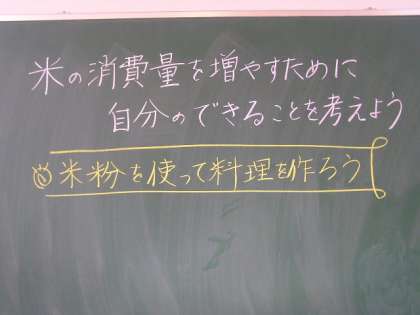 米の消費量を増やすために
自分のできることを考えよう
め米粉を使って料理を作ろう